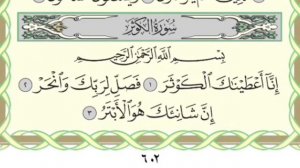 سُورَةُ الْكَوْثَرِ
بِسْمِ اللَّهِ الرَّحْمَٰنِ الرَّحِيمِ
إِنَّا أَعْطَيْنَاكَ الْكَوْثَرَ ١ فَصَلِّ لِرَبِّكَ وَانْحَرْ ٢
إِنَّ شَانِئَكَ هُوَ الْأَبْتَرُ ٣
٦٠٢